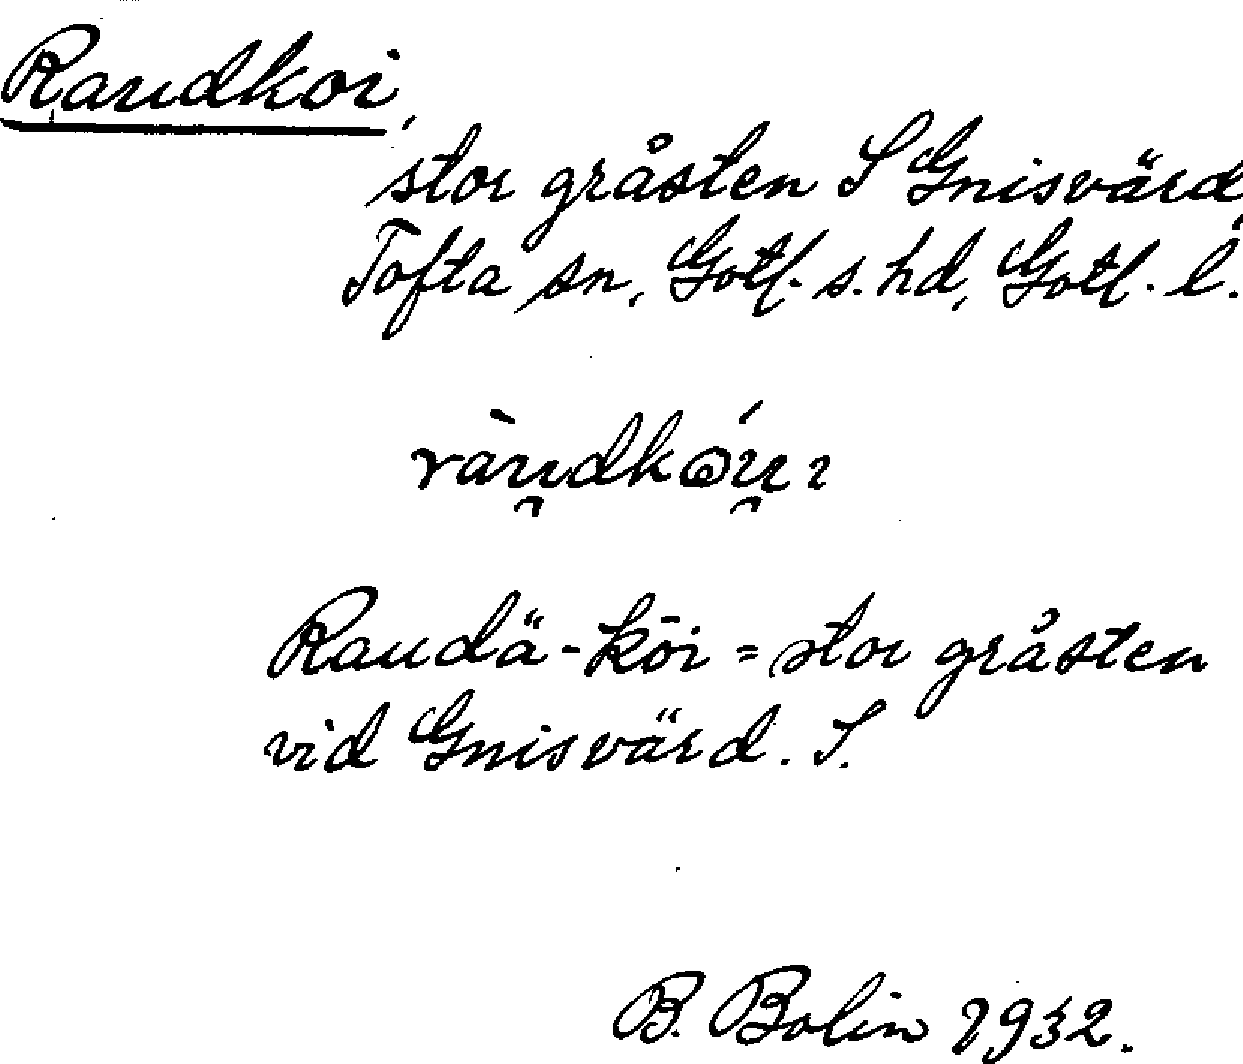 Raudkoi,
stor gråsten S Gnisvärd,
Tofta sn, Gotl. s. hd, Gotl. l.
Raudä-kōi = stor gråsten
vid Gnisvärd. S.
B. Bolin 1932.